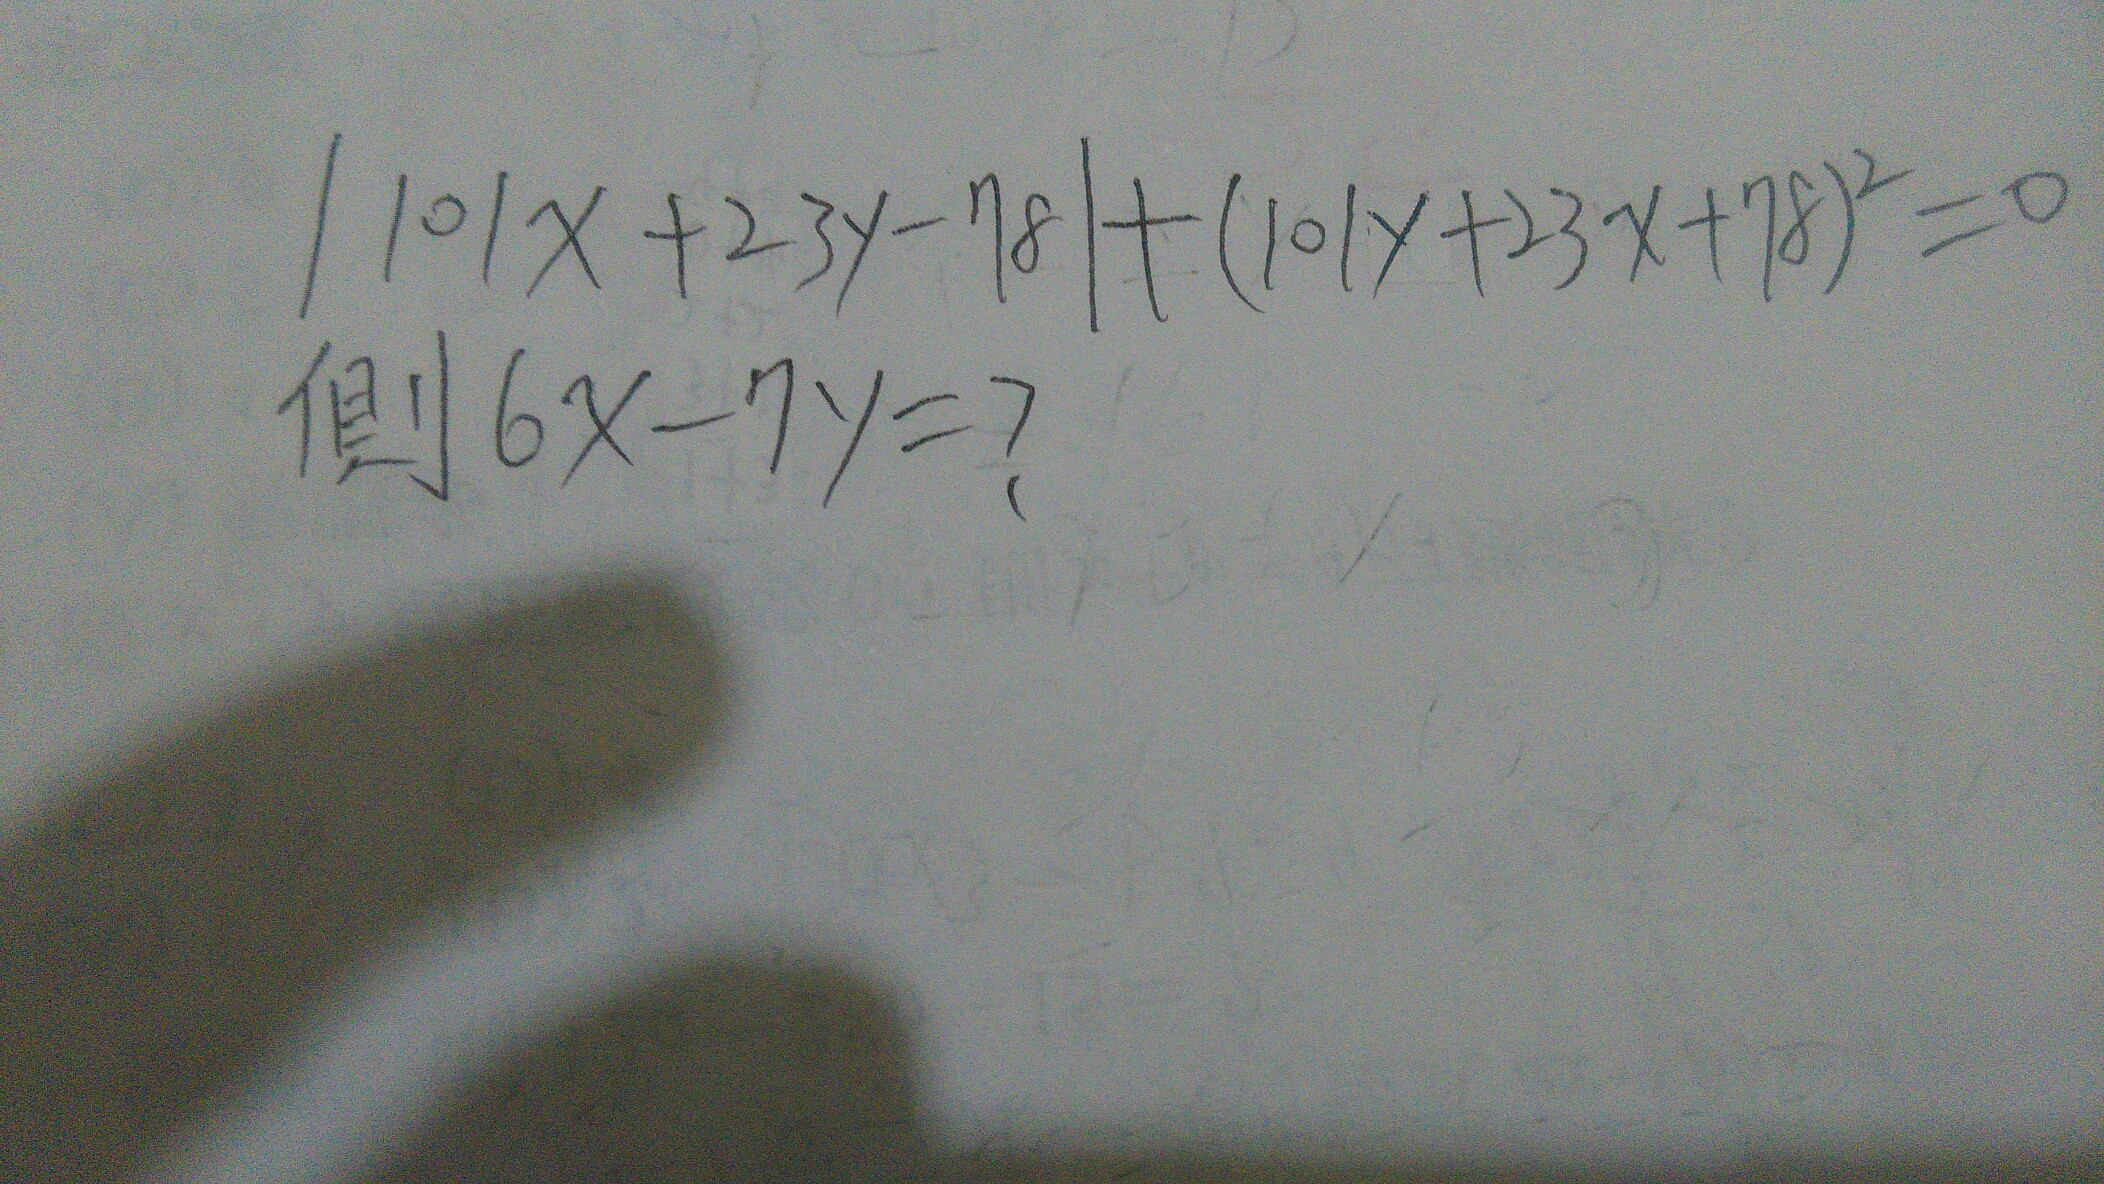 |101x+23y-78|+(101y+23x+78)²=0
側6x-7y=?